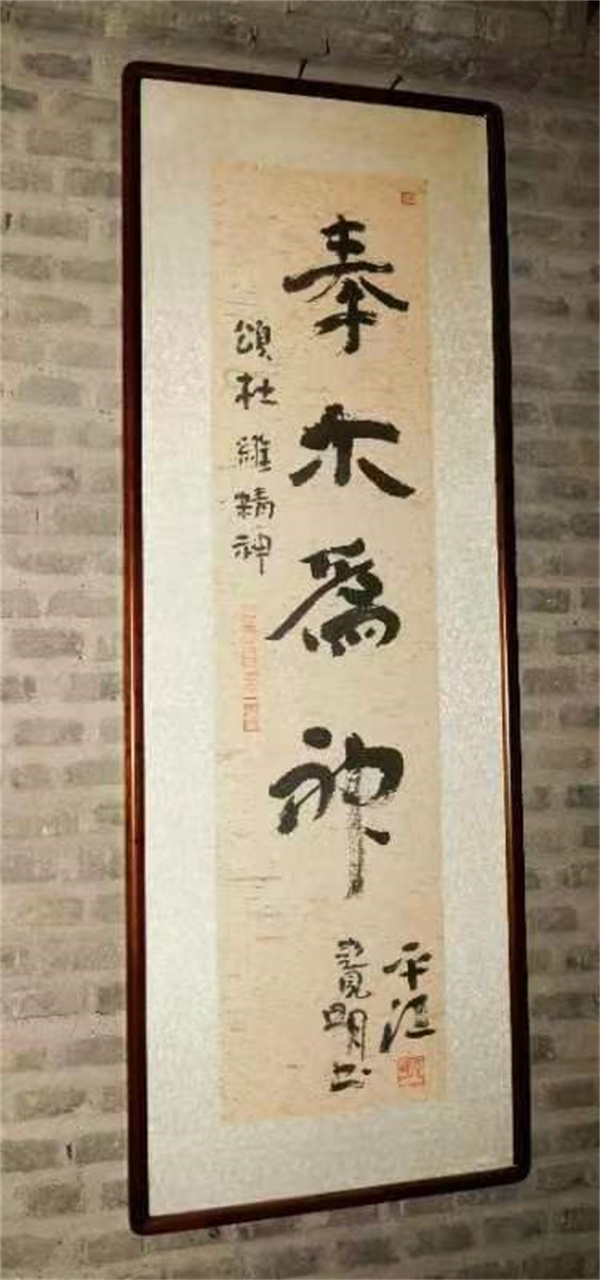 奉木爲神
頌杜維精神
平江
明书